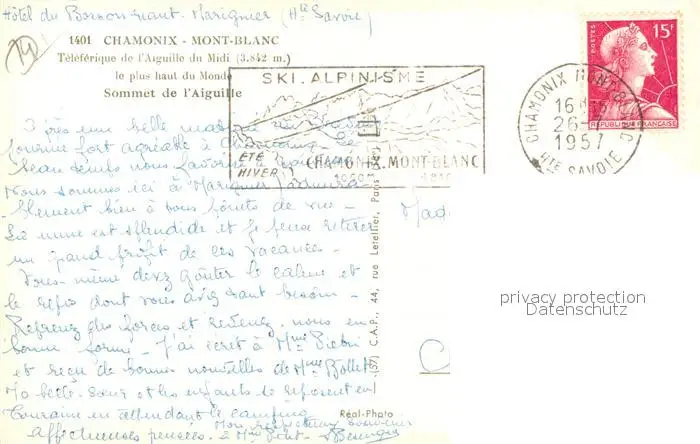 Hôtel du Borsons-nant. Marignier (Hte Savoie)
1401 CHAMONIX - MONT-BLANC
Téléférique de l'Aiguille du Midi (3.842 m.)
le plus haut du Monde
Sommet de l'Aiguille
SKI. ALPINISME
ÉTÉ
HIVER
CHAMONIX. MONT-BLANC
POSTES
15F
REPUBLIQUE FRANÇAISE
CHAMONIX MONT-BLANC
16
26-
1957
HTE SAVOIE
Après une belle
journée fort agréable à Chamonix le
beau temps nous favorise
Nous sommes ici à Marignier admira-
blement bien à tous points de vue -
La vue est splendide et je pense retirer
un grand profit de ces vacances -
Vous-même devez goûter le calme et
le repos dont vous avez tant besoin -
Reprenez des forces et revenez-nous en
bonne forme - J'ai écrit à Mme
et reçu de bonnes nouvelles de Mme
Ma belle-soeur et les enfants se reposent en
Touraine en attendant le camping
Mon respectueux souvenir
Affectueuses pensées. à Mme
Mad
C
(57) C.A.P., 44, rue Letellier, Paris
Réal-Photo
privacy protection
Datenschutz